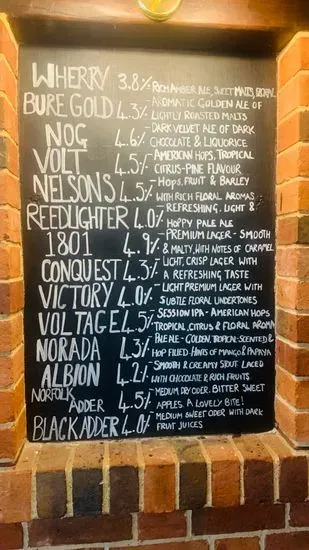 WHERRY 3.8% - RICH AMBER ALE, SWEET MALTS, FLORAL
BURE GOLD 4.3% - AROMATIC GOLDEN ALE OF
LIGHTLY ROASTED MALTS
NOG 4.6% - DARK VELVET ALE OF DARK
CHOCOLATE & LIQUORICE
VOLT 4.5% - AMERICAN HOPS, TROPICAL
CITRUS-PINE FLAVOUR
NELSONS 4.5% - HOPS, FRUIT & BARLEY
WITH RICH FLORAL AROMAS
REEDLIGHTER 4.0% - REFRESHING, LIGHT &
HOPPY PALE ALE
1801 4.9% - PREMIUM LAGER - SMOOTH
& MALTY, WITH NOTES OF CARAMEL
CONQUEST 4.3% - LIGHT, CRISP LAGER WITH
A REFRESHING TASTE
VICTORY 4.0% - LIGHT PREMIUM LAGER WITH
SUBTLE FLORAL UNDERTONES
VOLTAGE 4.5% - SESSION IPA - AMERICAN HOPS
TROPICAL, CITRUS & FLORAL AROMA
NORADA 4.3% - PALE ALE - GOLDEN, TROPICAL-SCENTED &
HOP FILLED. HINTS OF MANGO & PAPAYA
ALBION 4.2% - SMOOTH & CREAMY STOUT LACED
WITH CHOCOLATE & RICH FRUITS
NORFOLK ADDER 4.5% - MEDIUM DRY CIDER. BITTER SWEET
APPLES. A LOVELY BITE!
BLACK ADDER 4.0% - MEDIUM SWEET CIDER WITH DARK
FRUIT JUICES